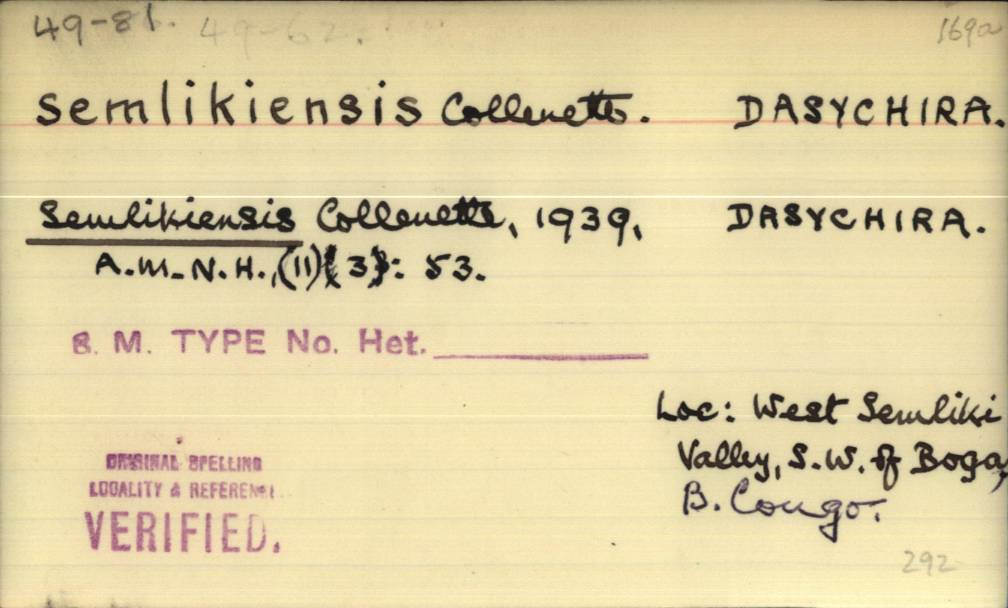 49-81. 49-62. 169a
semlikiensis Collenette. DASYCHIRA.
semlikiensis Collenette, 1939, DASYCHIRA.
A.M.N.H., (11) (3): 53.
B. M. TYPE No. Het.
Loc: West Semliki
Valley, S.W. of Boga,
B. Congo.
ORIGINAL SPELLING
LOCALITY & REFERENCE
VERIFIED.
292